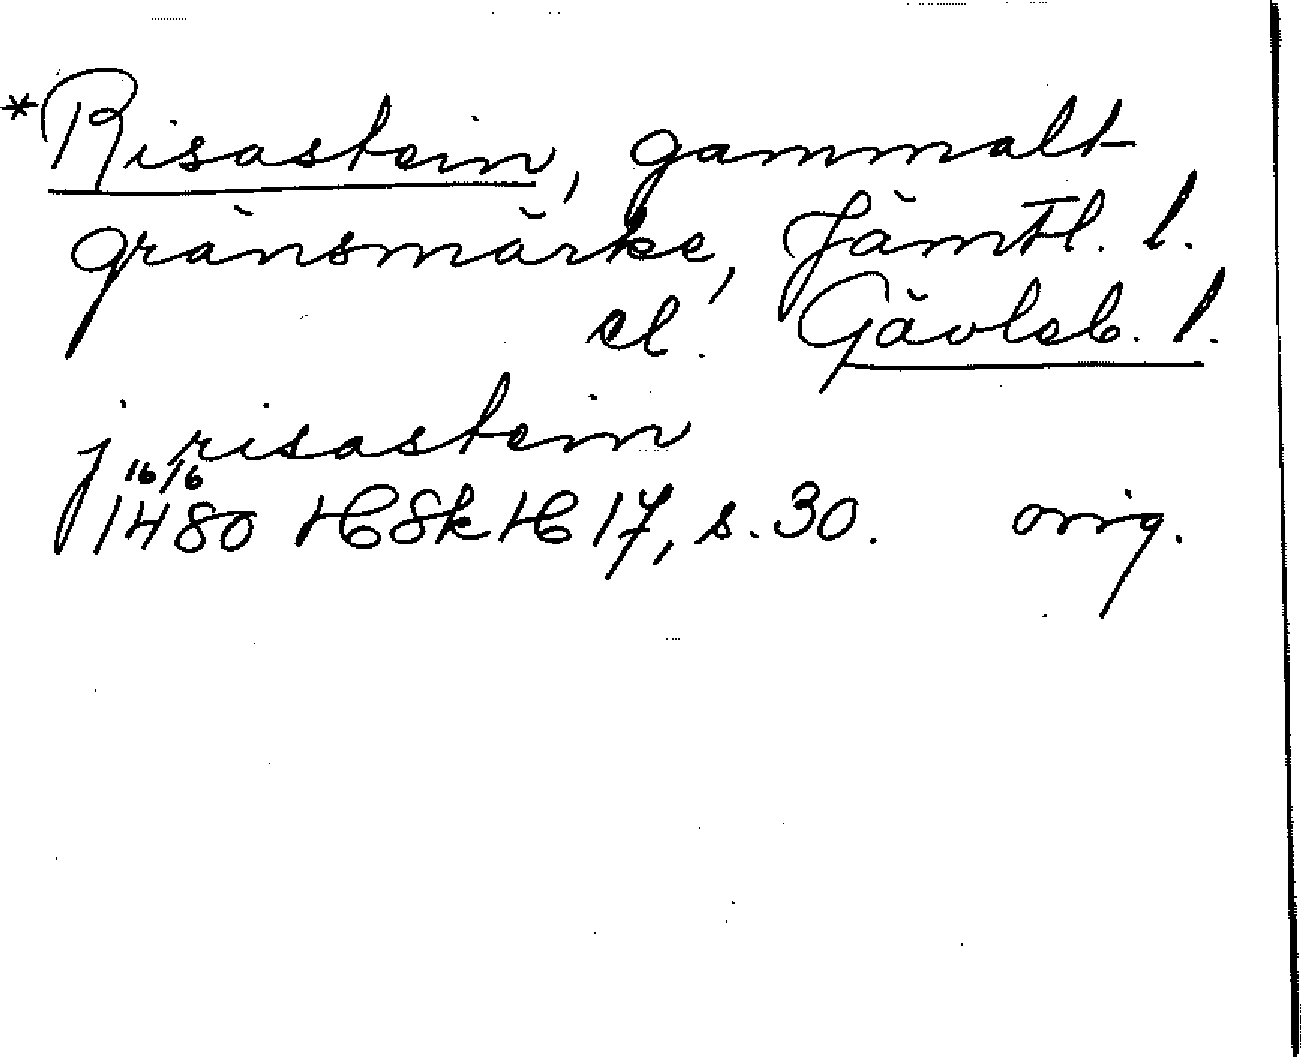 *Risastein, gammalt
gränsmärke, Jämtl. l.
el. Gävleb. l.
j risastein
16/6
1480 HSkH 17, s. 30. orig.